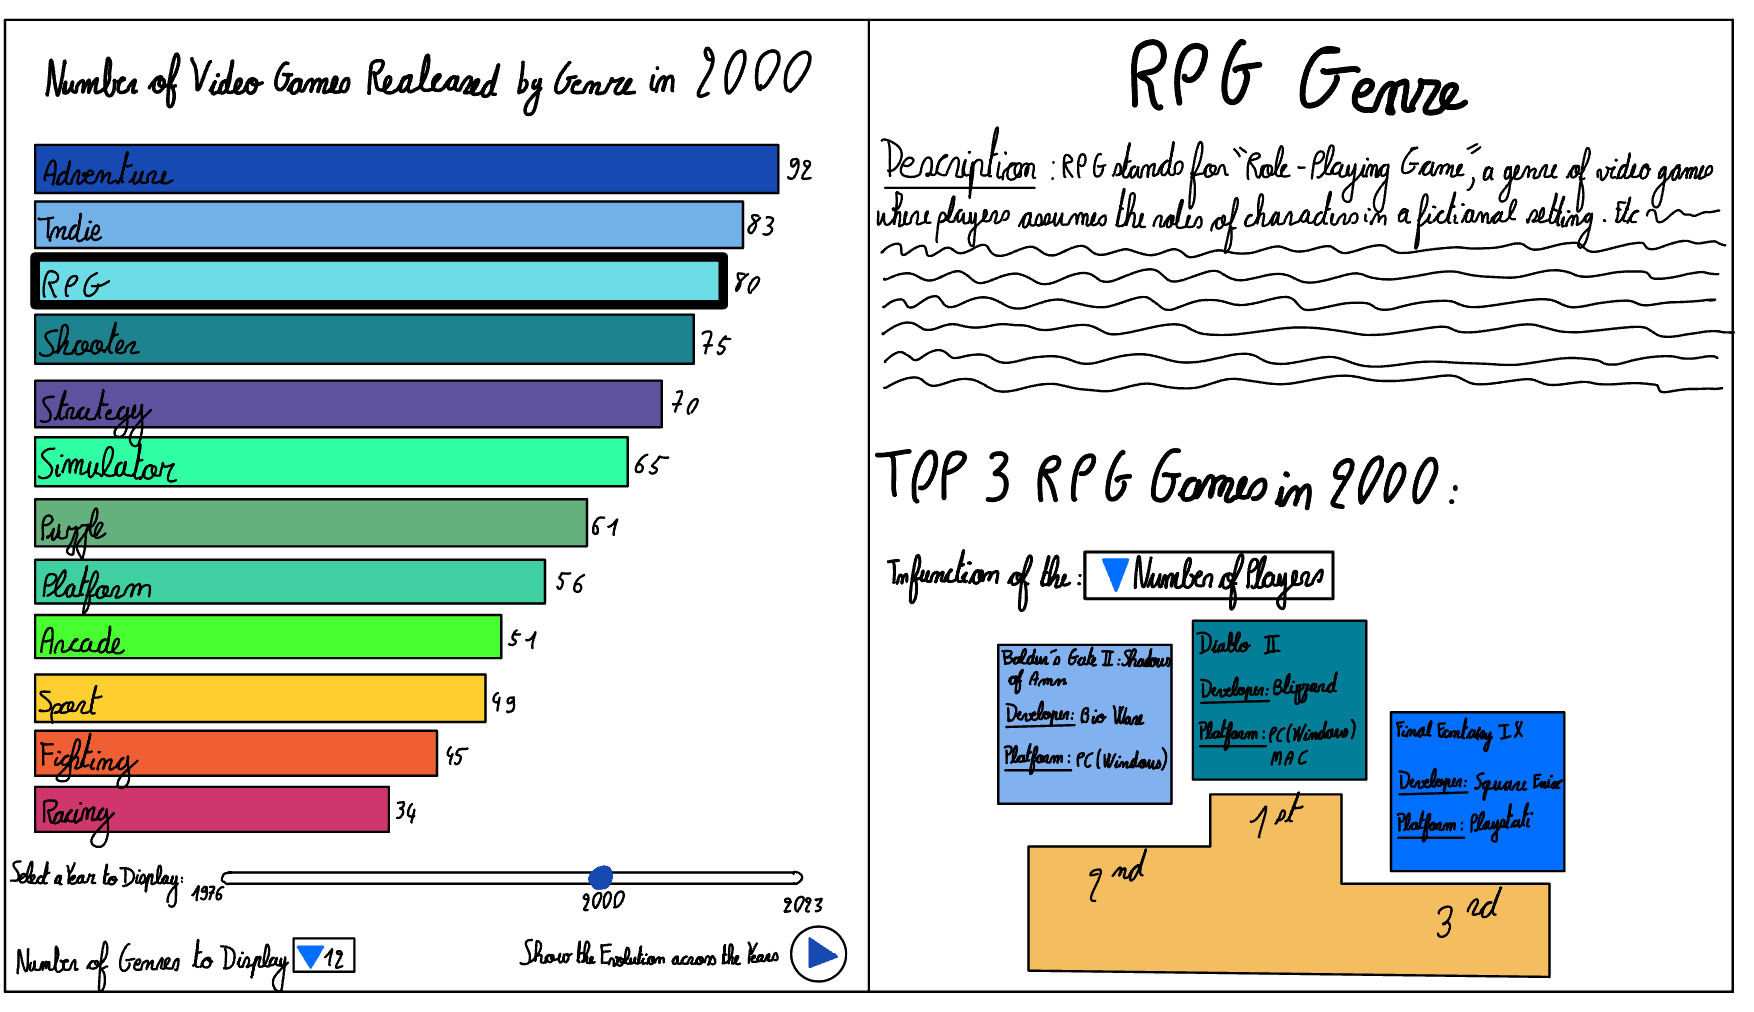 Number of Video Games Realeased by Genre in 2000
Adventure 92
Indie 83
RPG 80
Shooter 75
Strategy 70
Simulator 65
Puzzle 61
Platform 56
Arcade 51
Sport 49
Fighting 45
Racing 34
Select a Year to Display: 1976 2000 2023
Number of Genres to Display 12
Show the Evolution across the Years
RPG Genre
Description : RPG stands for "Role-Playing Game", a genre of video games
where players assumes the roles of characters in a fictional setting. Etc
TOP 3 RPG Games in 2000 :
In function of the : Number of Players
Baldur's Gate II : Shadows
of Amn
Developer: Bio Ware
Platform: PC (Windows)
Diablo II
Developer: Blizzard
Platform: PC (Windows)
MAC
Final Fantasy IX
Developer: Square Enix
Platform: Playstati
1st
2nd
3rd